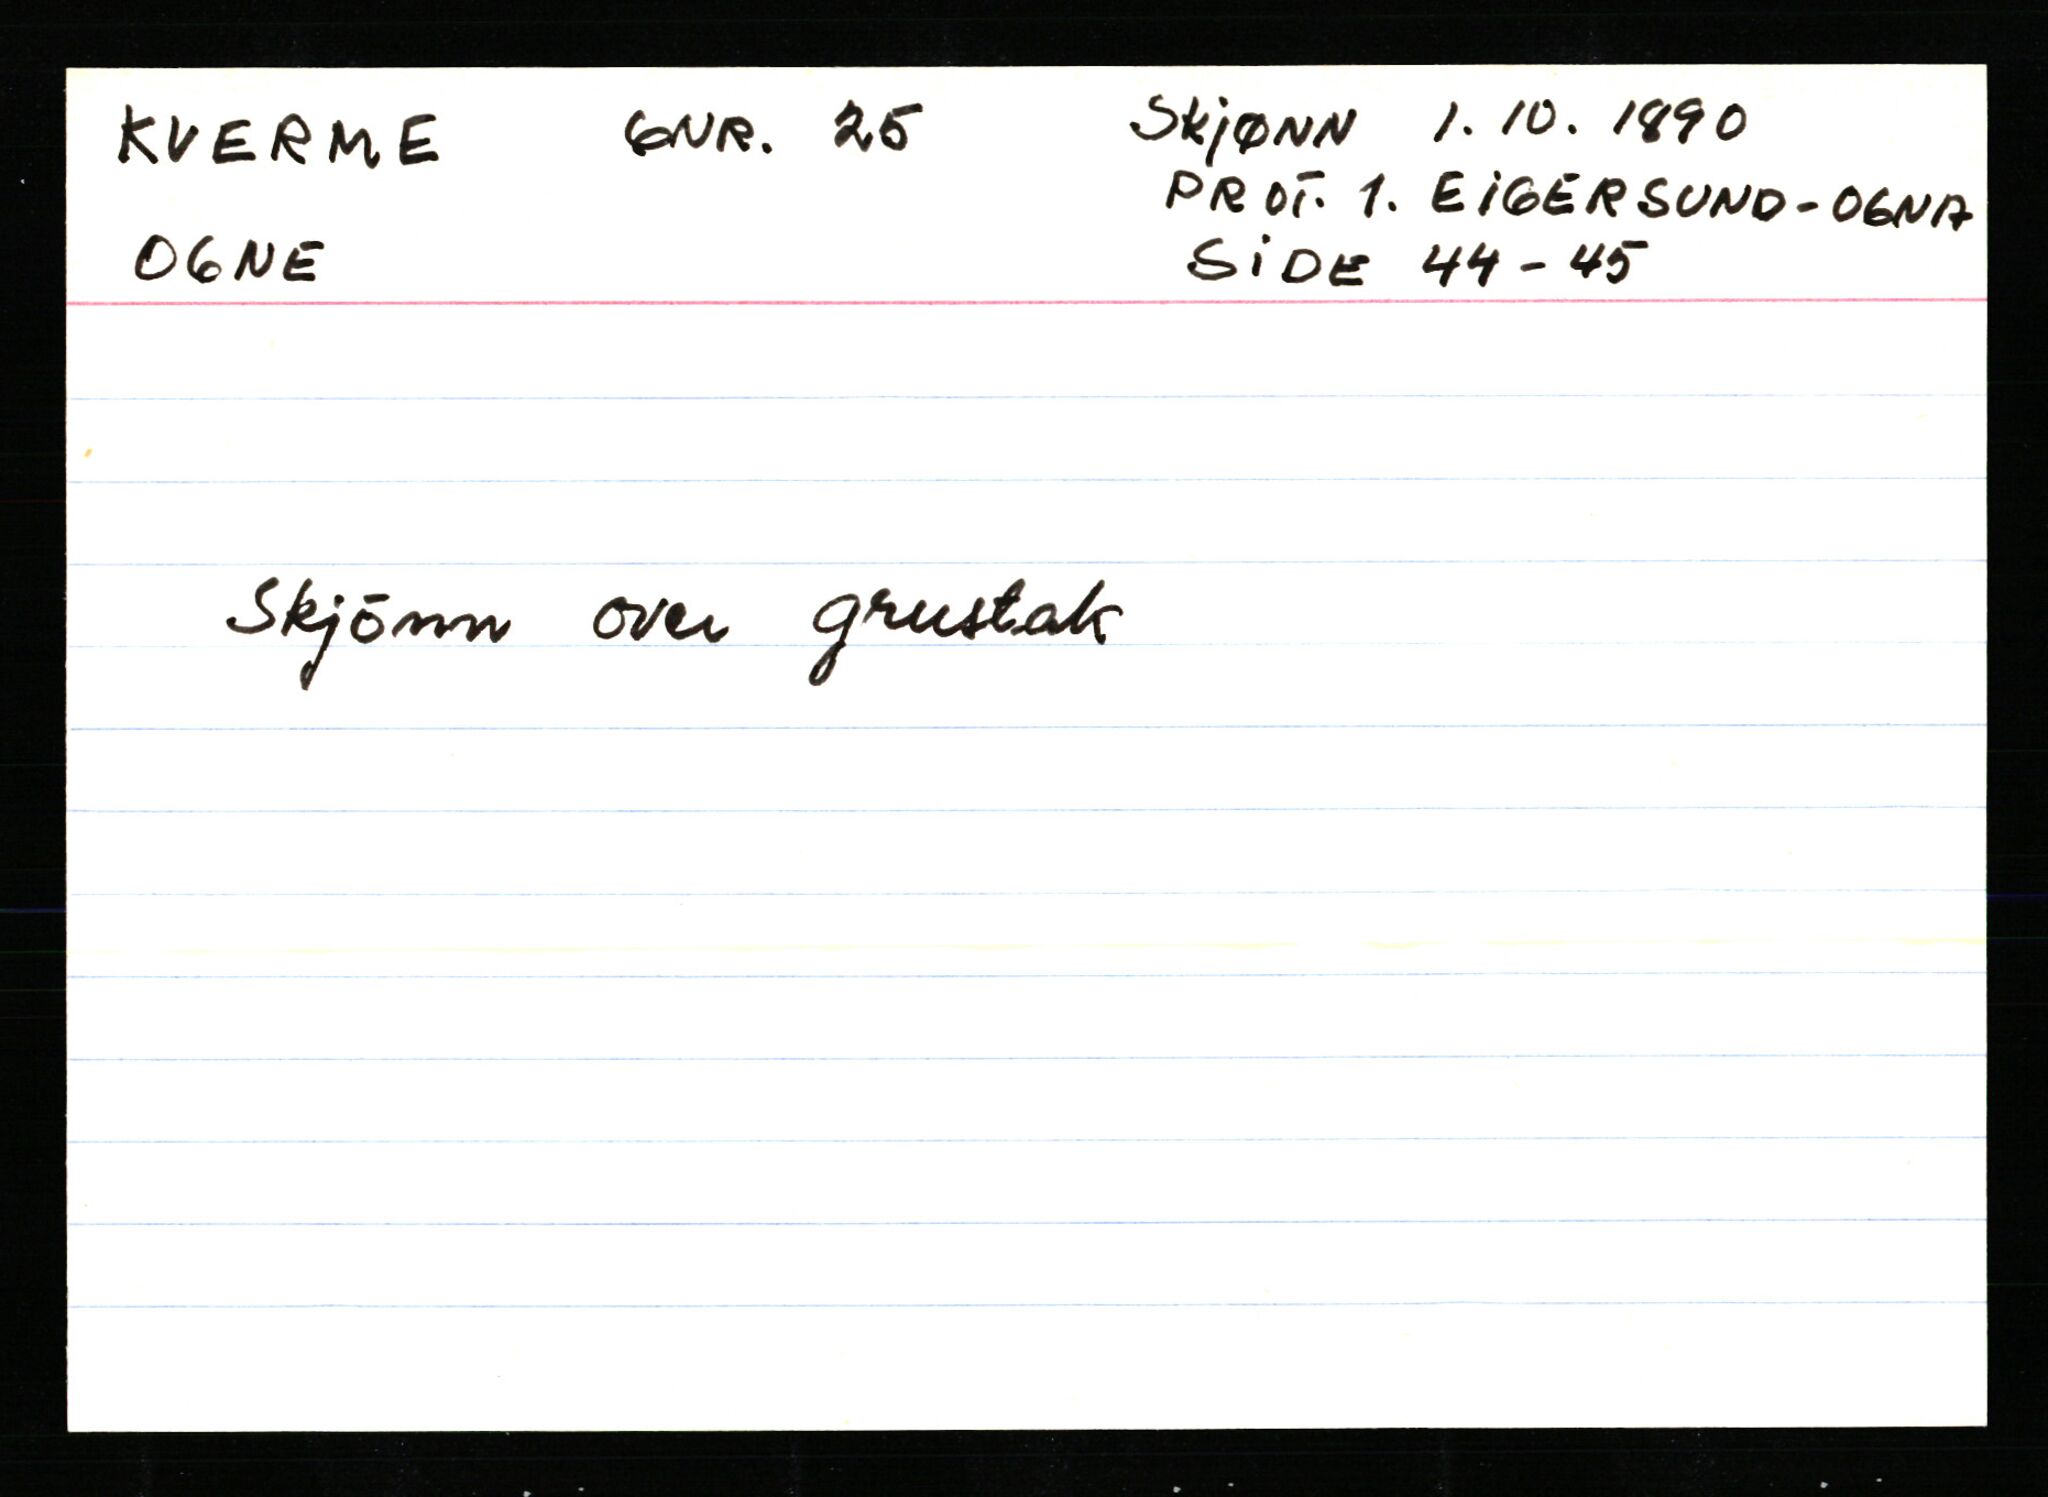 KVERME GNR. 25 SKjØNN 1. 10. 1890
PROT. 1. EiGERSUND - OGNA
OGNE SiDE 44 - 45
Skjōnn over grustak